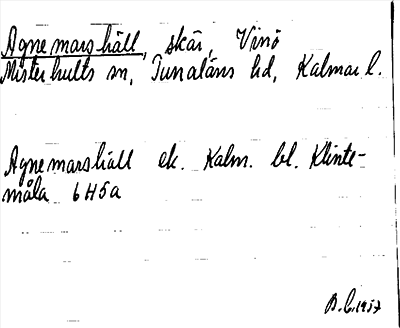 Agnemarshäll, skär, Vinö
Misterhults sn, Tunaläns hd, Kalmar l.
Agnemarshäll ek. Kalm. bl. Klinte-
måla 6H5a
B.C. 1937